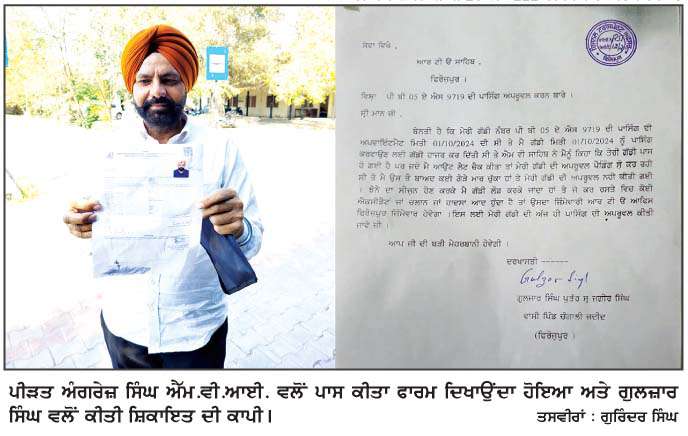 ਸੇਵਾ ਵਿਖੇ ,
ਆਰ ਟੀ ਓ ਸਾਹਿਬ ,
ਫਿਰੋਜਪੁਰ ।
ਵਿਸ਼ਾ ਪੀ ਬੀ 05 ਏ ਐਸ 9719 ਦੀ ਪਾਸਿੰਗ ਅਪਰੂਵਲ ਕਰਨ ਬਾਰੇ ।
ਸ਼੍ਰੀ ਮਾਨ ਜੀ ,
ਬੇਨਤੀ ਹੈ ਕਿ ਮੇਰੀ ਗੱਡੀ ਨੰਬਰ ਪੀ ਬੀ 05 ਏ ਐਸ 9719 ਦੀ ਪਾਸਿੰਗ ਦੀ
ਅਪਵਾਇੰਟਮੈਂਟ ਮਿਤੀ 01/10/2024 ਦੀ ਸੀ ਤੇ ਮੈ ਗੱਡੀ ਮਿਤੀ 01/10/2024 ਨੂੰ ਪਾਸਿੰਗ
ਕਰਵਾਉਣ ਲਈ ਗੱਡੀ ਹਾਜਰ ਕਰ ਦਿੱਤੀ ਸੀ ਤੇ ਐਮ ਵੀ ਸਾਹਿਬ ਨੇ ਮੈਨੂੰ ਕਿਹਾ ਕਿ ਤੇਰੀ ਗੱਡੀ ਪਾਸ
ਹੋ ਗਈ ਹੈ ਪਰ ਜਦੋ ਮੈ ਆਉਟ ਲੈਟ ਚੈਕ ਕੀਤਾ ਤਾਂ ਮੇਰੀ ਗੱਡੀ ਦੀ ਅਪਰੂਵਲ ਪੈਂਡਿੰਗ ਸ਼ੋ ਕਰ ਰਹੀ
ਸੀ ਤੇ ਮੈ ਉਸ ਤੋ ਬਾਅਦ ਕਈ ਗੇੜੇ ਮਾਰ ਚੁੱਕਾ ਹਾਂ ਤੇ ਮੇਰੀ ਗੱਡੀ ਦੀ ਅਪਰੂਵਲ ਨਹੀ ਕੀਤੀ ਗਈ।
ਝੋਨੇ ਦਾ ਸੀਜਨ ਹੋਣ ਕਰਕੇ ਮੈ ਗੱਡੀ ਲੋਡ ਕਰਕੇ ਜਾਂਦਾ ਹਾਂ ਤੇ ਜੇ ਕਰ ਰਸਤੇ ਵਿਚ ਕੋਈ
ਐਕਸੀਡੈਂਟ ਜਾਂ ਚਲਾਨ ਜਾਂ ਹਾਦਸਾ ਆਦ ਹੁੰਦਾ ਹੈ ਤਾਂ ਉਸਦਾ ਜਿੰਮੇਵਾਰੀ ਆਰ ਟੀ ਓ ਆਫਿਸ
ਫਿਰੋਜਪੁਰ ਜਿੰਮੇਵਾਰ ਹੋਵੇਗਾ ।ਇਸ ਲਈ ਮੇਰੀ ਗੱਡੀ ਦੀ ਅੱਜ ਹੀ ਪਾਸਿੰਗ ਦੀ ਅਪਰੂਵਲ ਕੀਤੀ
ਜਾਵੇ ਜੀ ।
ਆਪ ਜੀ ਦੀ ਬੜੀ ਮੇਹਰਬਾਨੀ ਹੋਵੇਗੀ ।
ਦਰਖਾਸਤੀ ------
ਗੁਲਜਾਰ ਸਿੰਘ ਪੁਤਰ ਸ੍ਰ ਜਗੀਰ ਸਿੰਘ
ਵਾਸੀ ਪਿੰਡ ਚੰਗਾਲੀ ਜਦੀਦ
(ਫਿਰੋਜਪੁਰ)
ਪੀੜਤ ਅੰਗਰੇਜ਼ ਸਿੰਘ ਐੱਮ.ਵੀ.ਆਈ. ਵਲੋਂ ਪਾਸ ਕੀਤਾ ਫਾਰਮ ਦਿਖਾਉਂਦਾ ਹੋਇਆ ਅਤੇ ਗੁਲਜ਼ਾਰ
ਸਿੰਘ ਵਲੋਂ ਕੀਤੀ ਸ਼ਿਕਾਇਤ ਦੀ ਕਾਪੀ।
ਤਸਵੀਰਾਂ : ਗੁਰਿੰਦਰ ਸਿੰਘ